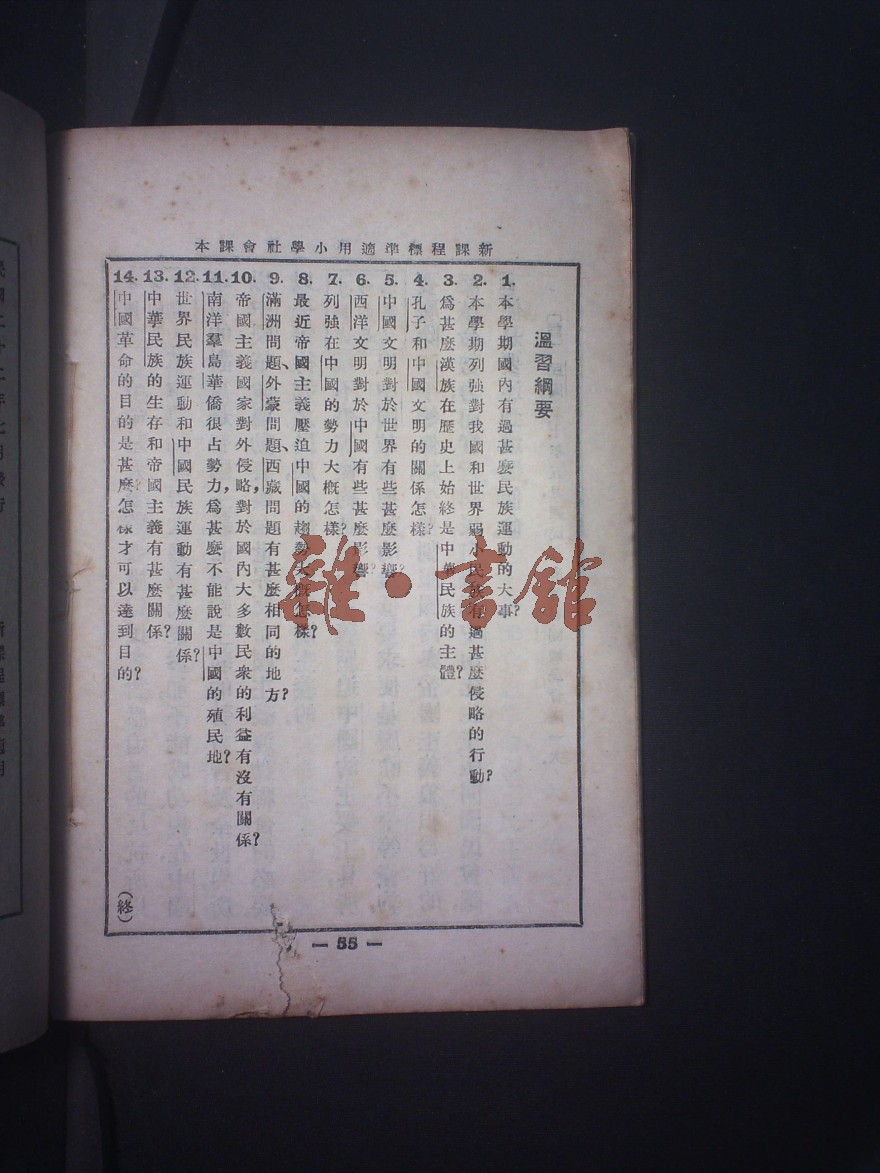 新課程標準適用小學社會課本
溫習綱要
1. 本學期國內有過甚麼民族運動的大事?
2. 本學期列強對我國和世界弱小民族有過甚麼侵略的行動?
3. 爲甚麼漢族在歷史上始終是中華民族的主體?
4. 孔子和中國文明的關係怎樣?
5. 中國文明對於世界有些甚麼影響?
6. 西洋文明對於中國有些甚麼影響?
7. 列強在中國的勢力大概怎樣?
8. 最近帝國主義壓迫中國的趨勢大概怎樣?
9. 滿洲問題、外蒙問題、西藏問題有甚麼相同的地方?
10. 帝國主義國家對外侵略,對於國內大多數民衆的利益有沒有關係?
11. 南洋羣島華僑很占勢力,爲甚麼不能說是中國的殖民地?
12. 世界民族運動和中國民族運動有甚麼關係?
13. 中華民族的生存和帝國主義有甚麼關係?
14. 中國革命的目的是甚麼?怎樣才可以達到目的?
(終)
— 55 —
雜·書館